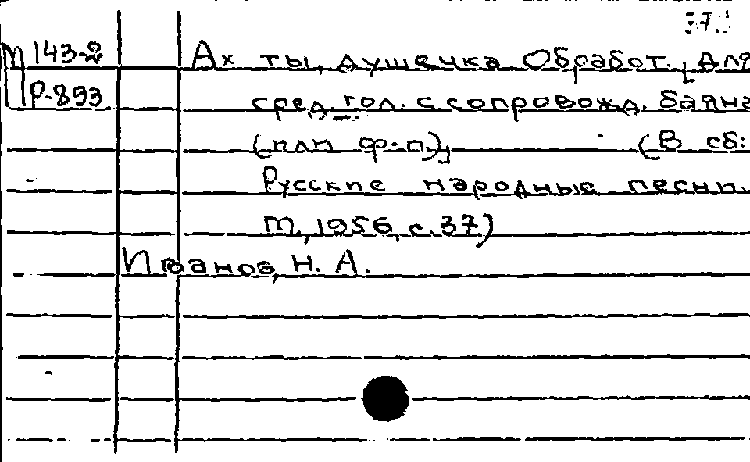 37.
М 143-2
Р-893
Ах ты, душечка Обработ. для
сред. гол. с сопровожд. баяна
(или ф-п) (В сб:
Русские народные песни.
М., 1956, с. 37)
Иванов, Н. А.